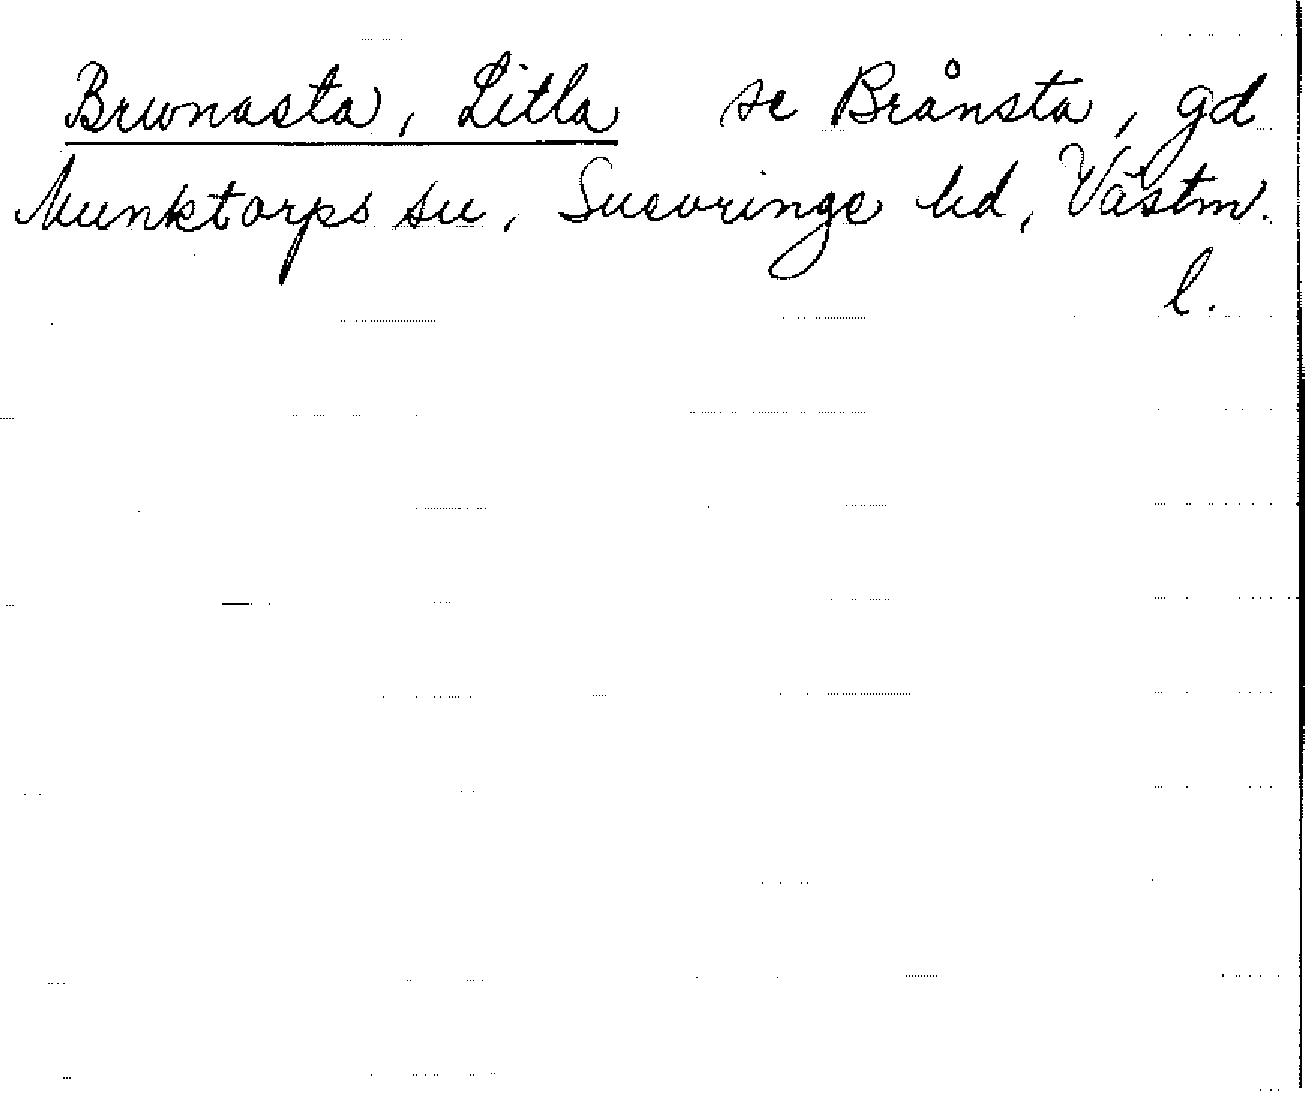 Brunasta, Litla se Brånsta, gd
Munktorps sn, Snevringe hd, Västm.
l.